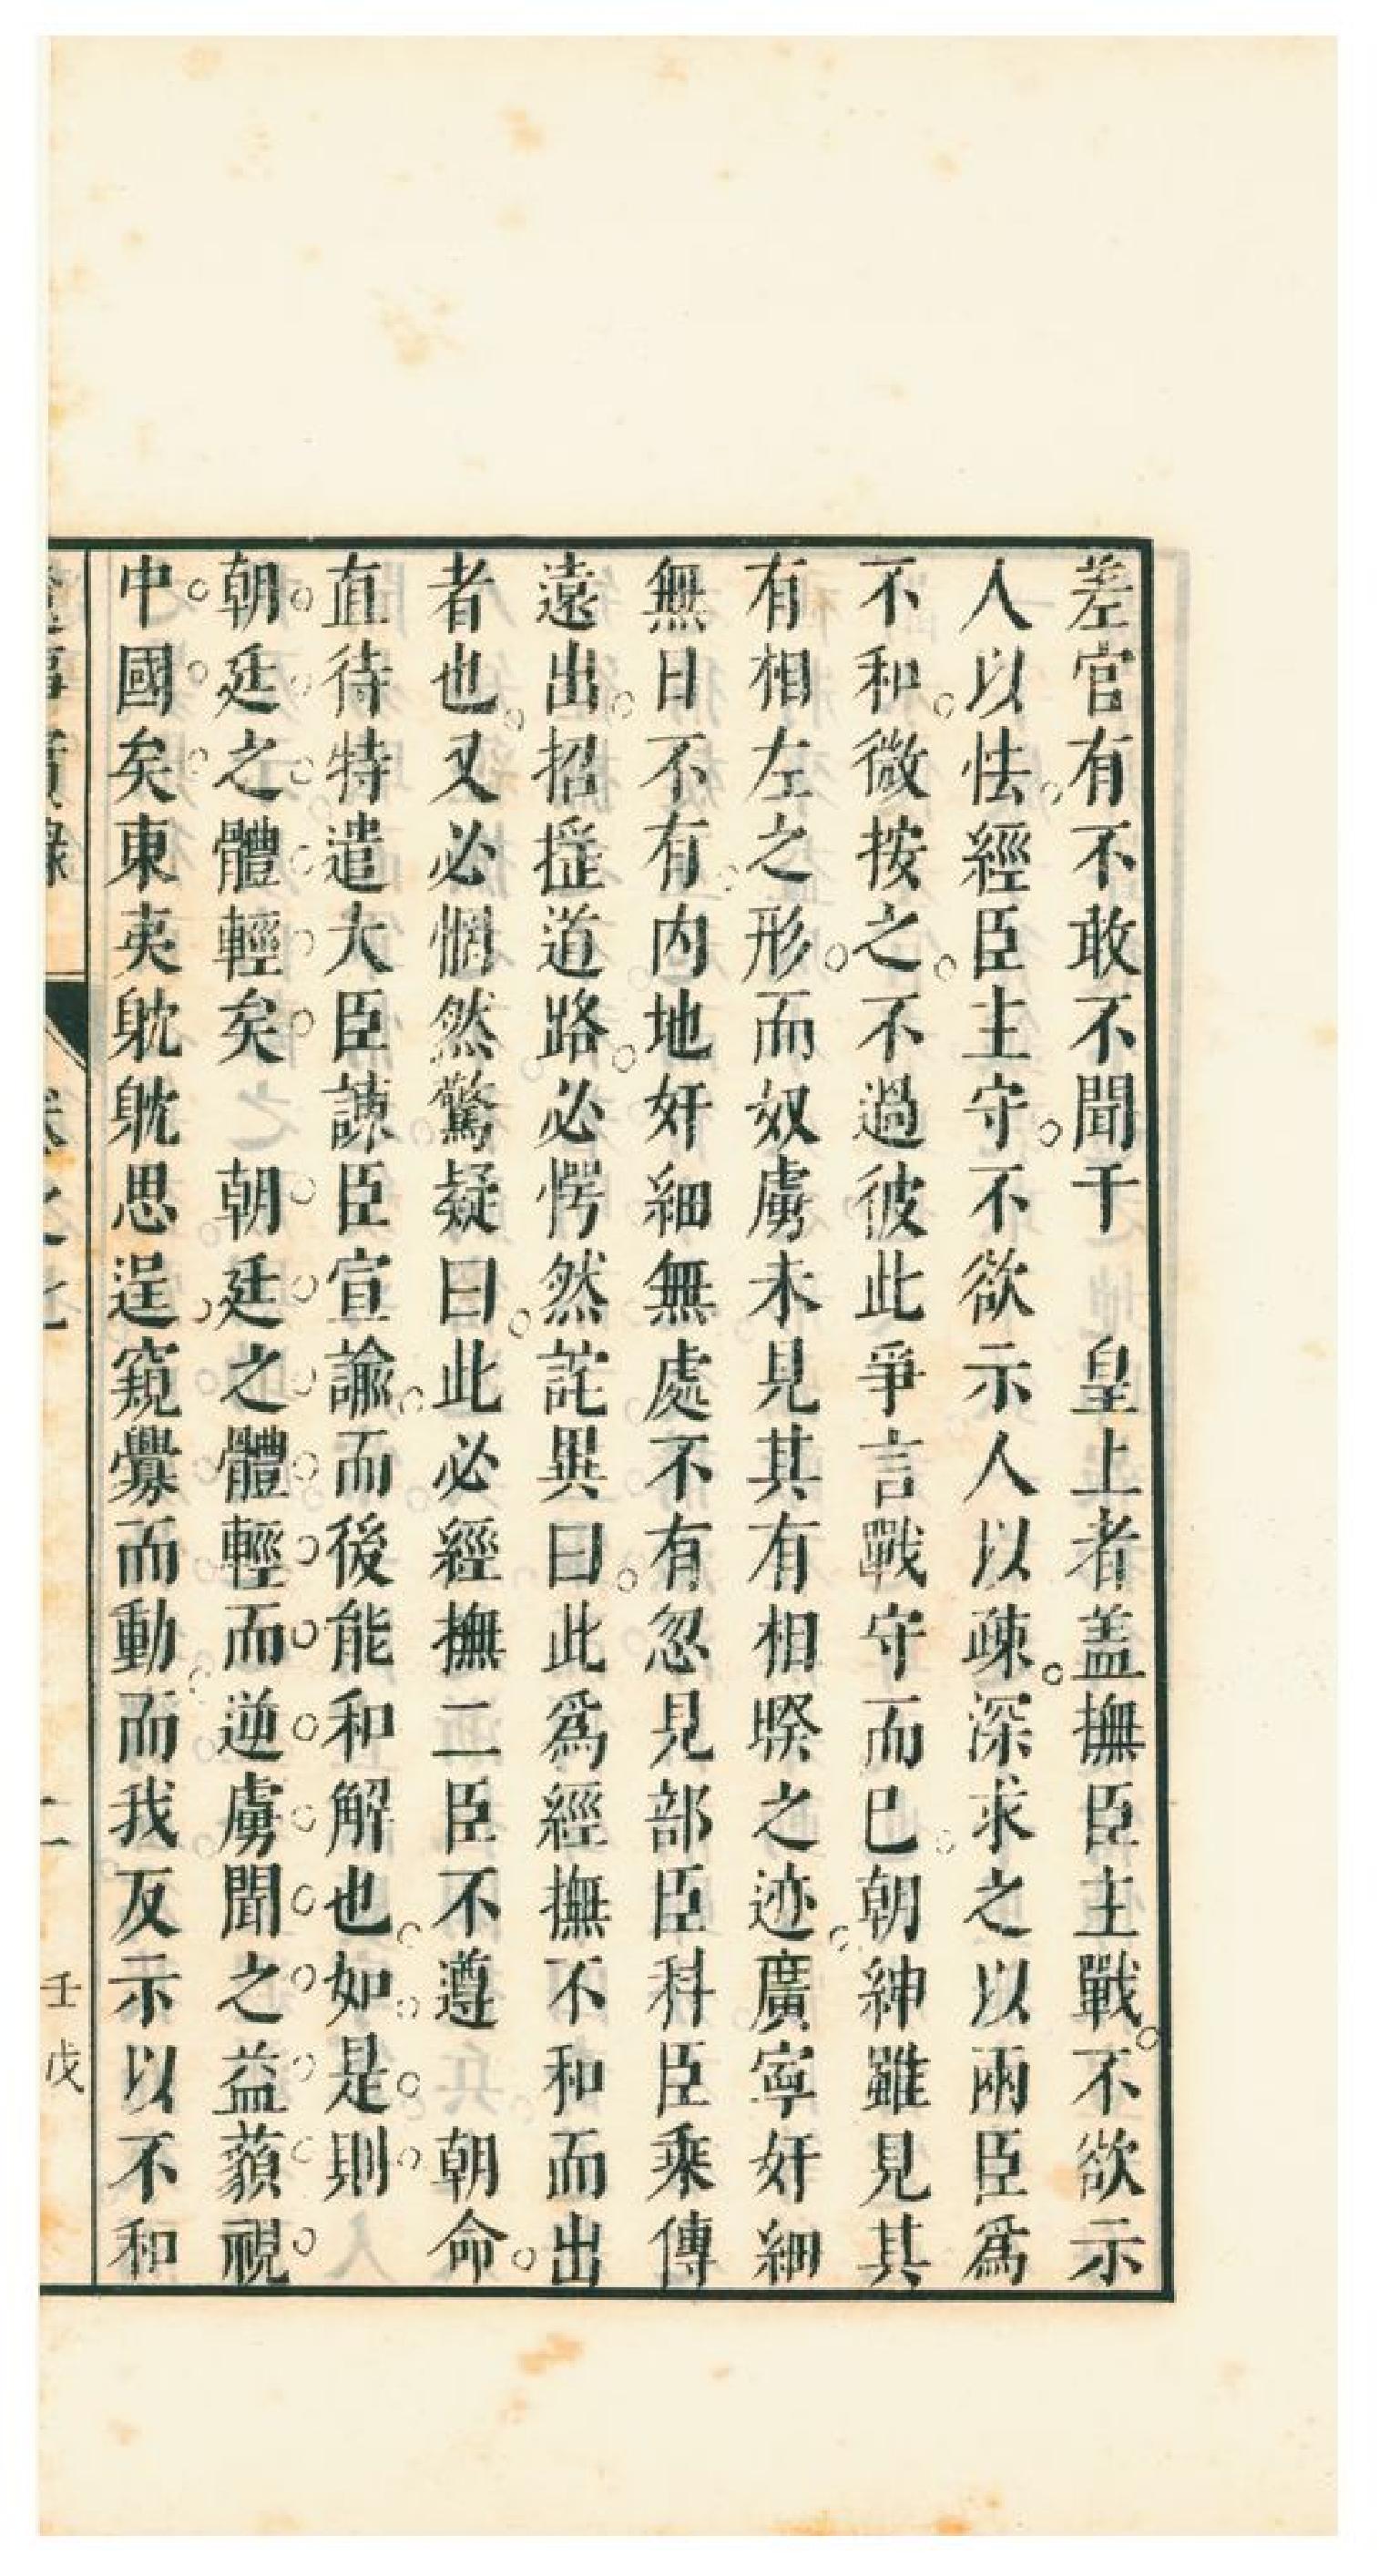 差官有不敢不聞于　皇上者盖撫臣主戰不欲示
人以怯經臣主守不欲示人以疎深求之以兩臣爲
不和微按之不過彼此爭言戰守而已朝紳雖見其
有相左之形而奴虜未見其有相暌之迹廣寧奸細
無日不有内地奸細無處不有忽見部臣科臣乘傳
遠出招搖道路必愕然詫異曰此爲經撫不和而出
者也又必惘然驚疑曰此必經撫二臣不遵　朝命
直待特遣大臣諫臣宣諭而後能和解也如是則
朝廷之體輕矣　朝廷之體輕而逆虜聞之益藐視
中國矣東夷躭躭思逞窺釁而動而我反示以不和
卷之七
二
壬戌